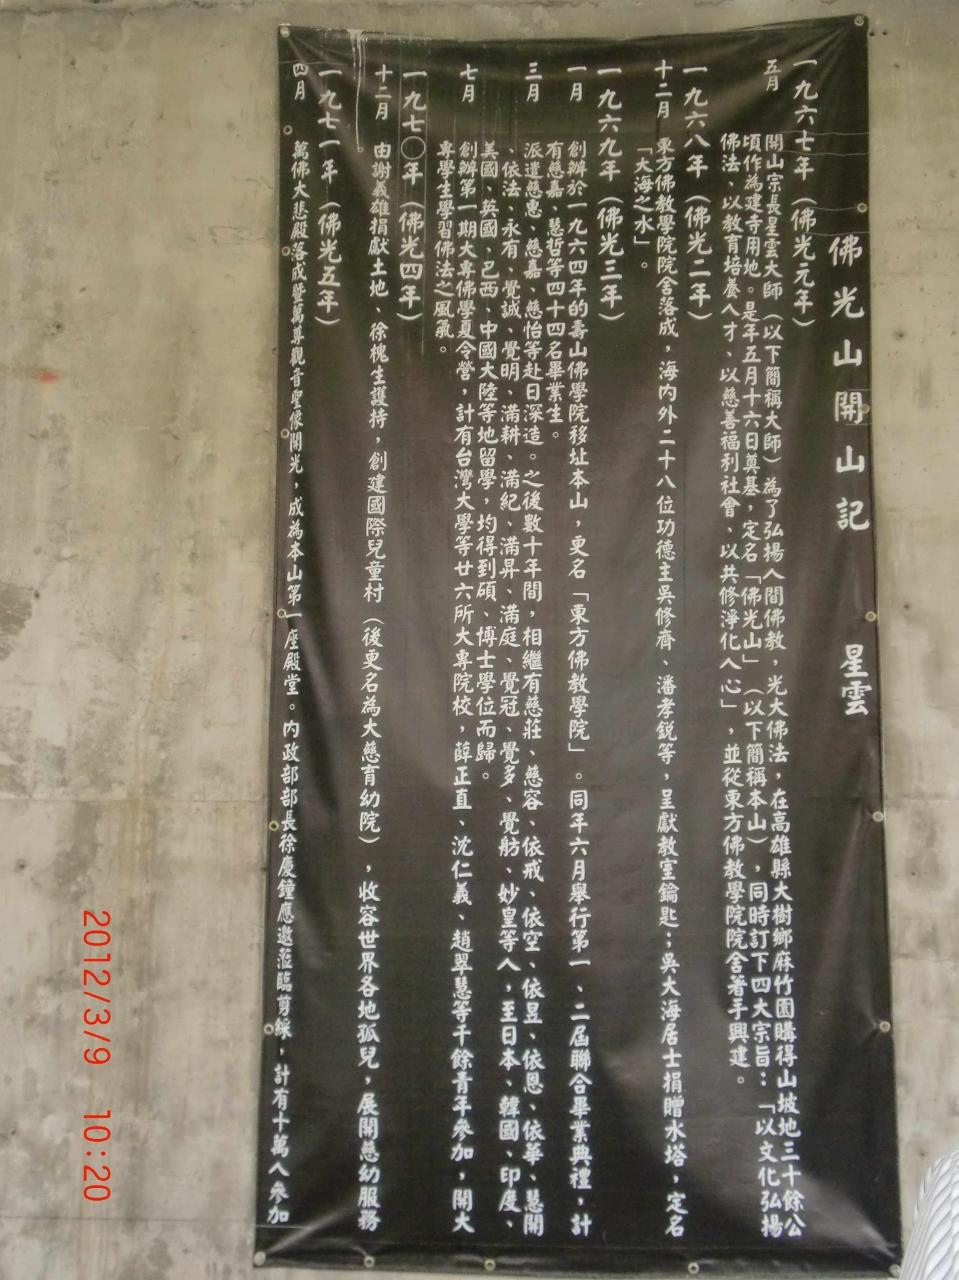 佛光山開山記　星雲
一九六七年（佛光元年）
五月　開山宗長星雲大師（以下簡稱大師）為了弘揚人間佛教，光大佛法，在高雄縣大樹鄉麻竹園購得山坡地三十餘公
頃作為建寺用地。是年五月十六日奠基，定名「佛光山」（以下簡稱本山），同時訂下四大宗旨：「以文化弘揚
佛法、以教育培養人才、以慈善福利社會、以共修淨化人心」，並從東方佛教學院院舍著手興建。
一九六八年（佛光二年）
十二月　東方佛教學院院舍落成，海內外二十八位功德主吳修齊、潘孝銳等，呈獻教室鑰匙；吳大海居士捐贈水塔，定名
「大海之水」。
一九六九年（佛光三年）
一月　創辦於一九六四年的壽山佛學院移址本山，更名「東方佛教學院」。同年六月舉行第一、二屆聯合畢業典禮，計
有慈嘉、慧哲等四十四名畢業生。
三月　派遣慈惠、慈嘉、慈怡等赴日深造。之後數十年間，相繼有慈莊、慈容、依戒、依空、依昱、依恩、依華、慧開
、依法、永有、覺誠、覺明、滿耕、滿紀、滿昇、滿庭、覺冠、覺多、覺舫、妙皇等人，至日本、韓國、印度、
美國、英國、巴西、中國大陸等地留學，均得到碩、博士學位而歸。
七月　創辦第一期大專佛學夏令營，計有台灣大學等廿六所大專院校，薛正直、沈仁義、趙翠慧等千餘青年參加，開大
專學生學習佛法之風氣。
一九七〇年（佛光四年）
十二月　由謝義雄捐獻土地、徐槐生護持，創建國際兒童村（後更名為大慈育幼院），收容世界各地孤兒，展開慈幼服務
一九七一年（佛光五年）
四月　萬佛大悲殿落成暨萬尊觀音聖像開光，成為本山第一座殿堂。內政部部長徐慶鐘應邀蒞臨剪綵，計有十萬人參加
2012/3/9 10:20